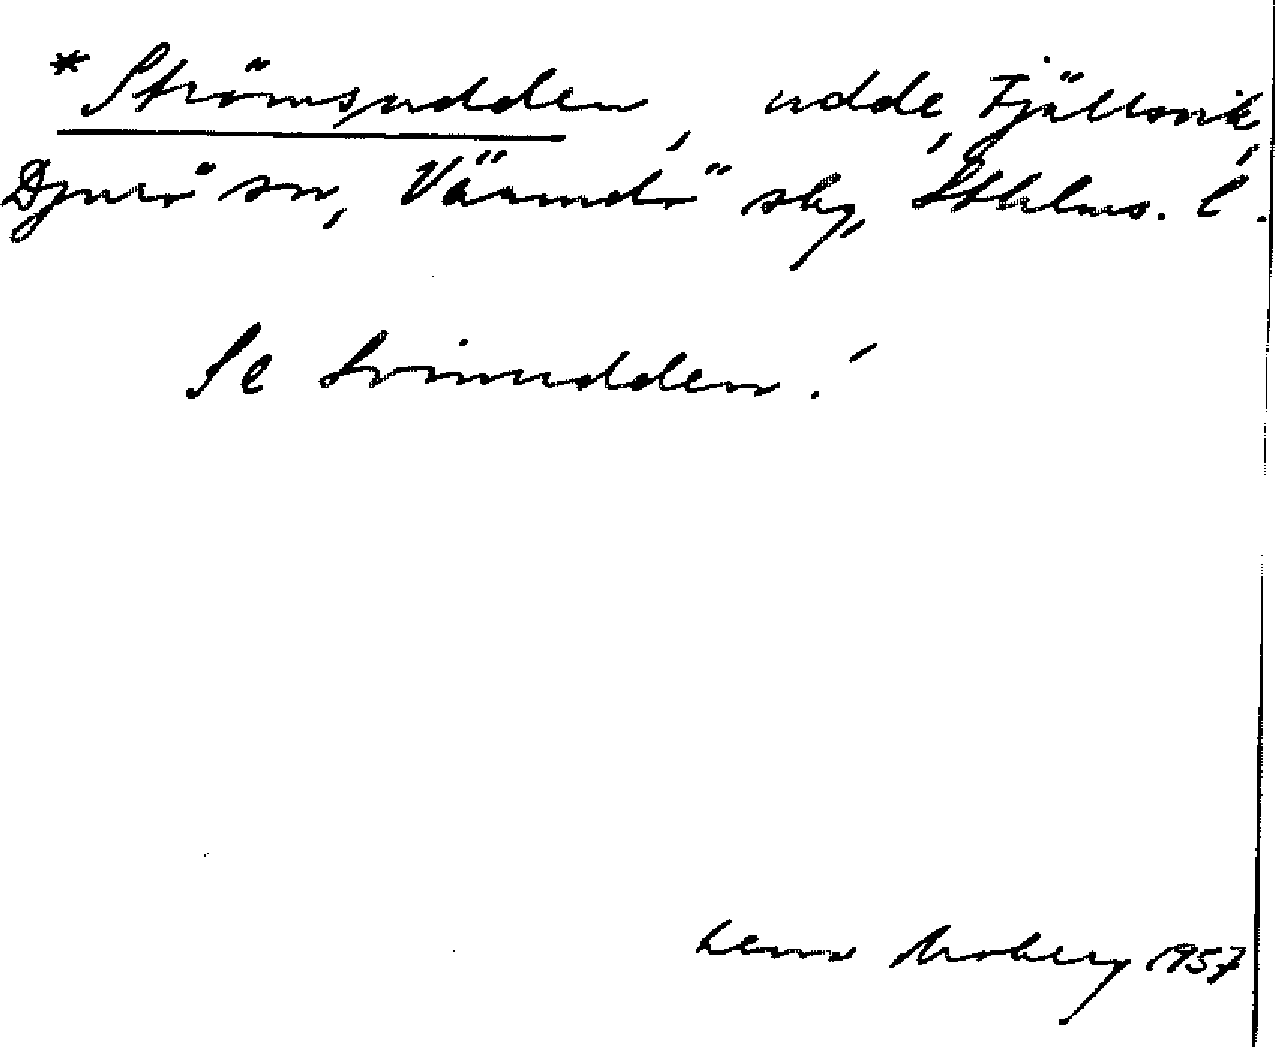 *Strömsudden, udde, Fjällsvik,
Djurö sn, Värmdö skg, Sthlms. l.
Se Svinudden!
Lena Moberg 1957